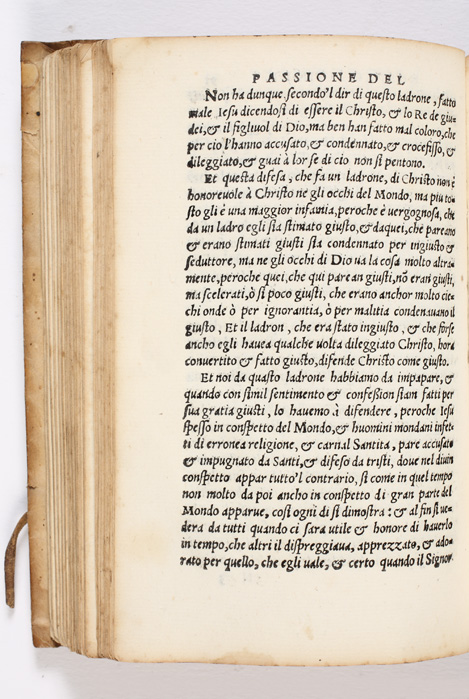 PASSIONE DEL
Non ha dunque, secondo'l dir di questo ladrone, fatto
male Iesu dicendosi di essere il Christo, & lo Re de giu
dei, & il figliuol di Dio, ma ben han fatto mal coloro, che
per cio l'hanno accusato, & condennato, & crocefisso, &
dileggiato, & guai à lor se di cio non si pentono.
Et questa difesa, che fa un ladrone, di Christo non è
honorevole à Christo ne gli occhi del Mondo, ma piu to-
sto gli è una maggior infamia, peroche è vergognosa, che
da un ladro egli sia stimato giusto, & da quei, che pareano
& erano stimati giusti sia condennato per ingiusto &
seduttore, ma ne gli occhi di Dio va la cosa molto altra-
mente, peroche quei, che qui parean giusti, nō eran giusti,
ma scelerati, ò si poco giusti, che erano anchor molto cie-
chi onde ò per ignorantia, ò per malitia condenavano il
giusto, Et il ladron, che era stato ingiusto, & che forse
ancho egli havea qualche volta dileggiato Christo, hora
convertito & fatto giusto, difende Christo come giusto.
Et noi da quasto ladrone habbiamo da impapare, &
quando con simil sentimento & confession siam fatti per
sua gratia giusti, lo havemo à difendere, peroche Iesu
spesso in conspetto del Mondo, & huomini mondani infet-
ti di erronea religione, & carnal Santita, pare accusato
& impugnato da Santi, & difeso da tristi, dove nel divin
conspetto appar tutto'l contrario, si come in quel tempo
non molto da poi ancho in conspetto di gran parte del
Mondo apparve, così ogni di si dimostra: & al fin si ve-
dera da tutti quando ci sara utile & honore di haverlo
in tempo, che altri il dispreggiava, apprezzato, & ado-
rato per quello, che egli vale, & certo quando il Signor